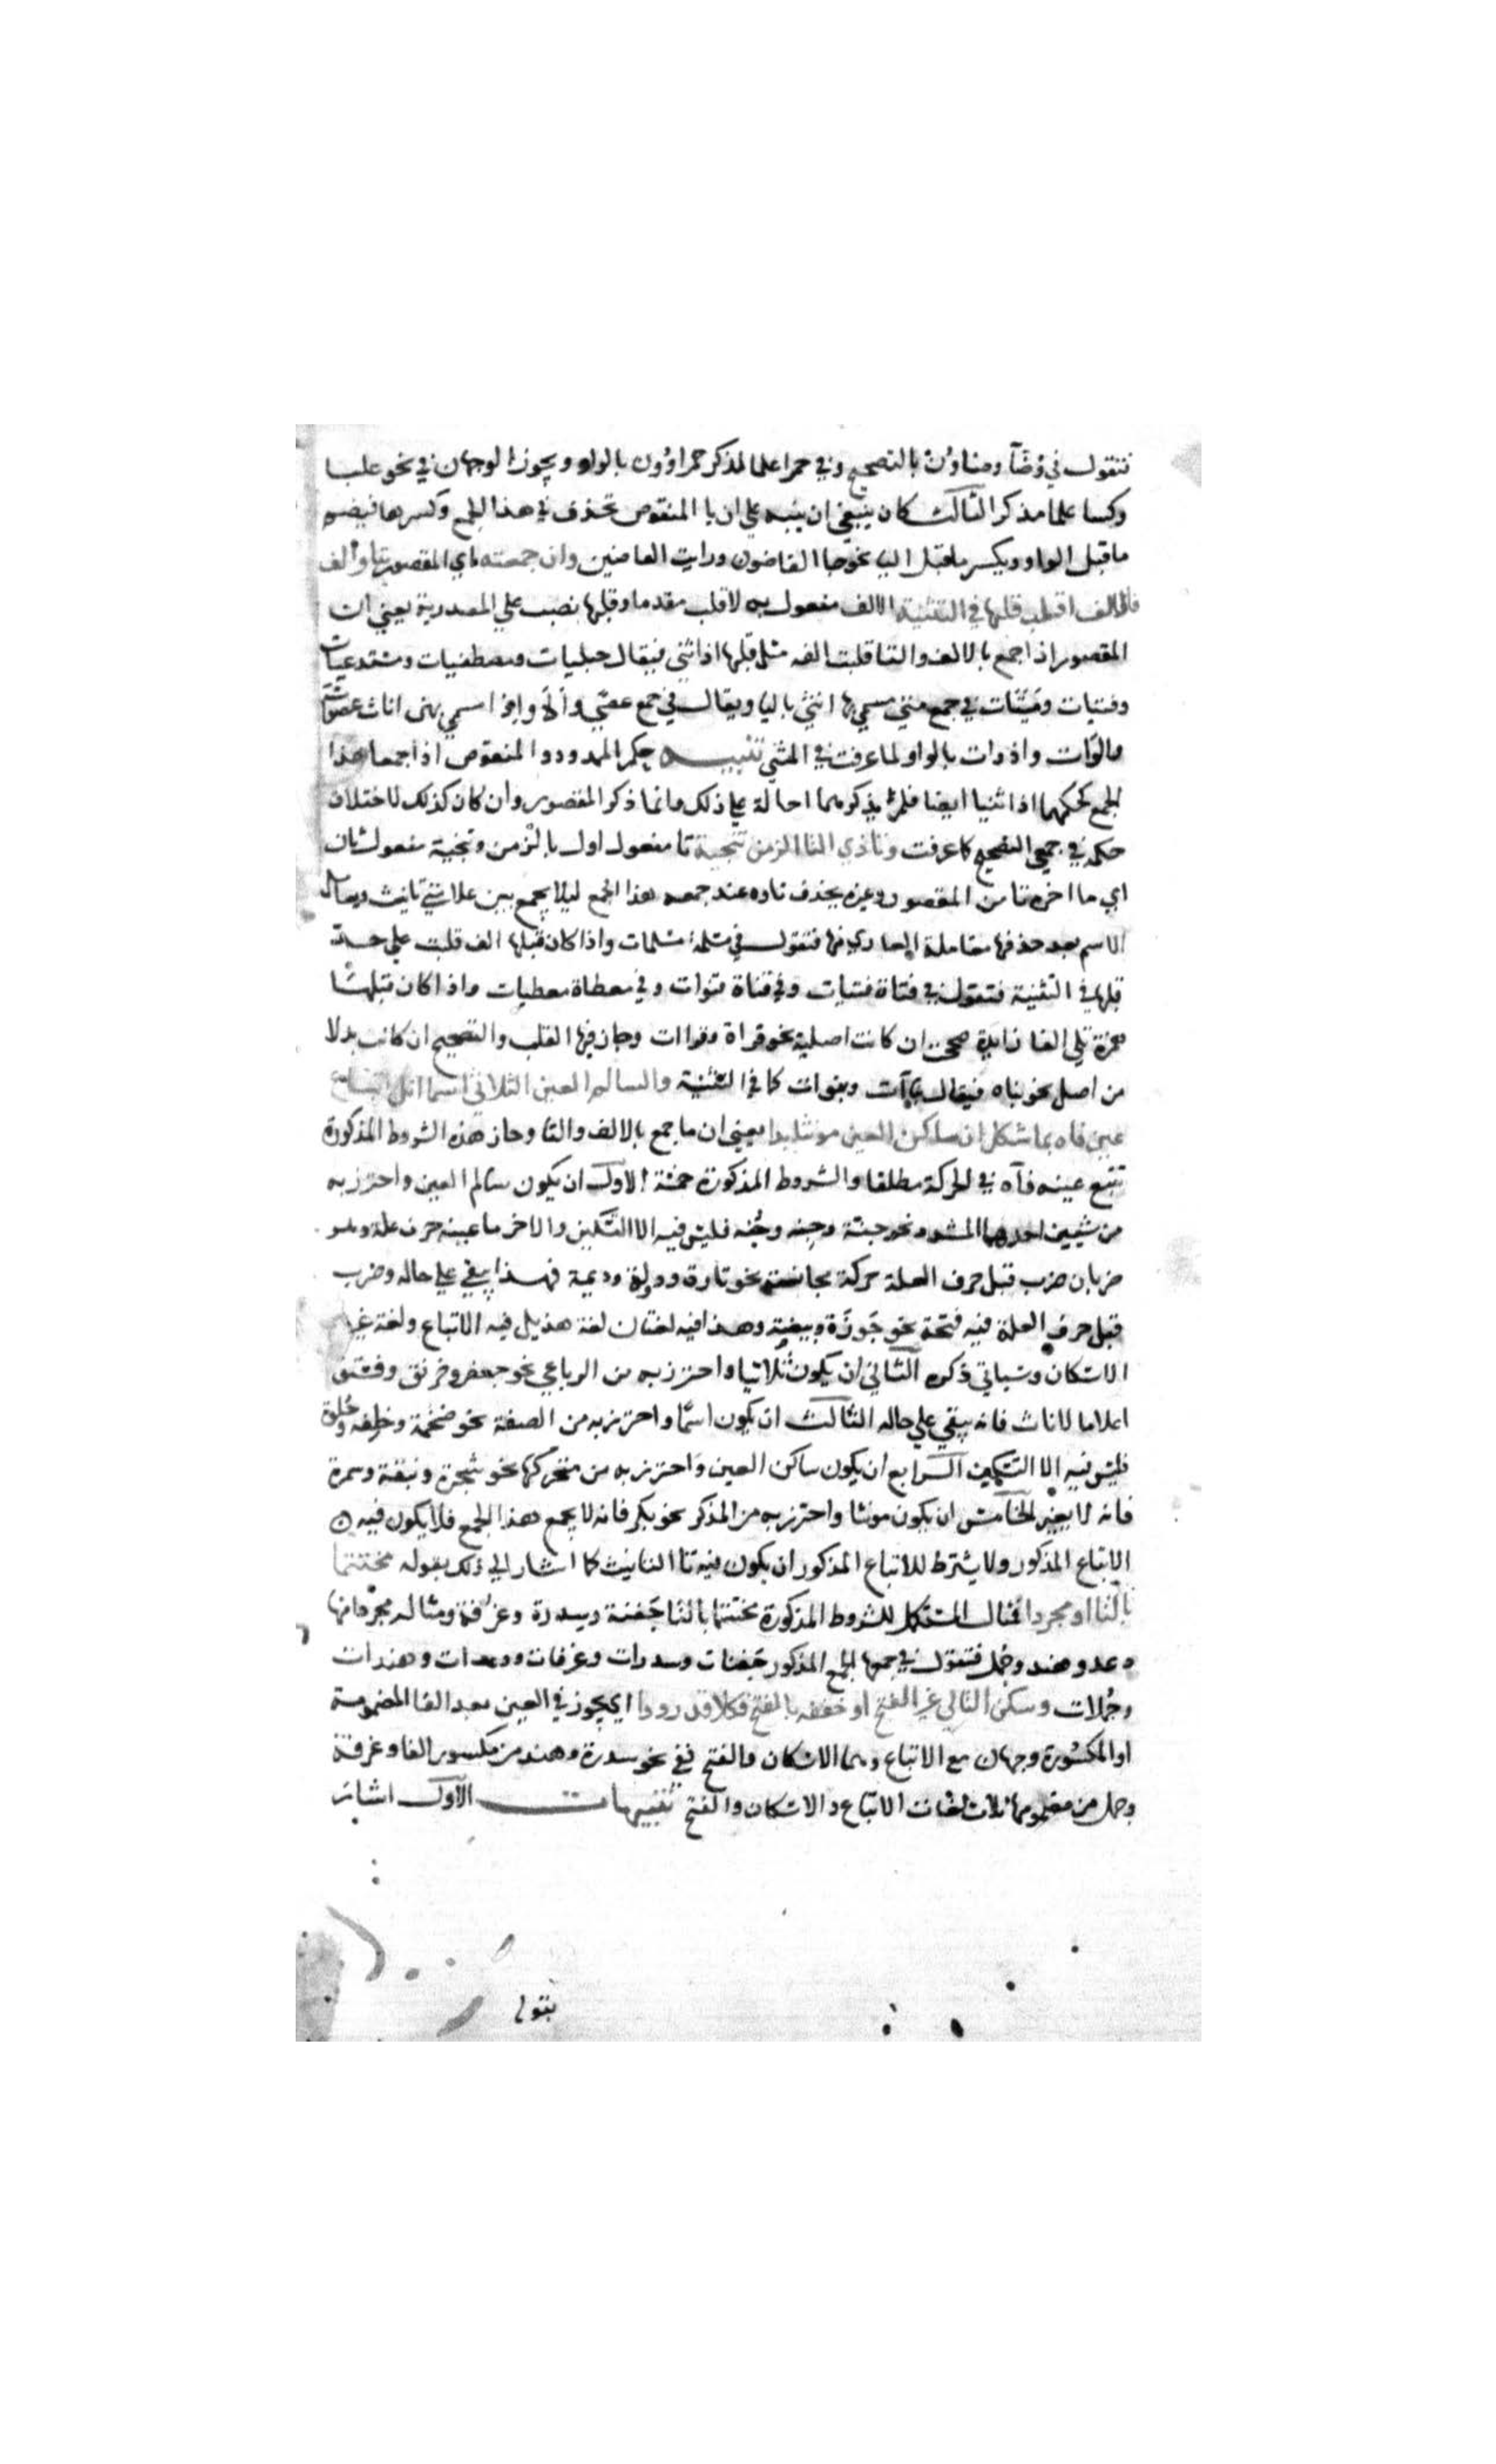 فتقول في وضآ وضاوُن بالتصحيح وفي حمرا علما لمذكر حمراوُون بالواو ويجوز الوجهان في نحو علبا
وكسا علما مذكر الثالث كان ينبغي ان ينبه علي ان يا المنقوص تحذف في هذا الجمع وكسرها فيضم
ما قبل الواو ويكسر ما قبل اليا نحو جا القاضون ورايت القاضين وان جمعته اي المقصور بتا والف
فالالف اقلب قلبها في التثنية الالف مفعول به لاقلب مقدما وقلبها نصب علي المصدرية يعني ان
المقصور اذا جمع بالالف والتا قلبت الفه مثل قلبها اذا ثني فيقال حبليات ومصطفيات ومستدعيات
وفتيات ومَتَيات في جمع متي مسمي بها انثي باليا ويقال في جمع عصَي وأَلَى واذا اسمي بهن اناث عصوات
والوَات واذوات بالواو لما عرفت في المثني تنبيه حكم الممدود والمنقوص اذا جمعا هذا
الجمع كحكمهما اذا ثنيا ايضا فلم يذكرهما احالة علي ذلك وانما ذكر المقصور وان كان كذلك لاختلاف
حكمه في جمعي التصحيح كما عرفت وتا ذي التا الزمن تنحية تا مفعول اول بالزمن وتنحية مفعول ثان
اي ما اخره تا من المقصور وغيره يحذف تاوه عند جمعه هذا الجمع ليلا يجمع بين علامتي تانيث ويعامل
الاسم بعد حذفها معاملة العاري منها فتقول في مسلمة مسلمات واذا كان قبلها الف قلبت علي حد
قلبها في التثنية فتقول في فتاة فتيات وفي قناة قنوات وفي معطاة معطيات واذا كان قبلها
همزة تلي الفا زايدة صحت ان كانت اصلية نحو قراة وقراات وجاز فيها القلب والتصحيح ان كانت بدلا
من اصل نحو نباه فيقال نباآت ونبوات كما في التثنية والسالم العين الثلاثي اسما انل اتباع
عين فاه بما شكل ان ساكن العين مونثا بدا يعني ان ما جمع بالالف والتا وحاز هذه الشروط المذكورة
تتبع عينه فآه في الحركة مطلقا والشروط المذكورة خمسة الاول ان يكون سالم العين واحترز به
من شيين احدهما المشدد نحو جنة وجِنه وجُنه فليس فيه الا التسكين والاخر ما عينه حرف علة وهو
ضربان ضرب قبل حرف العلة حركة تجانسه نحو تارة ودولة وديمة فهذا يبقي علي حاله وضرب
قبل حرف العلة فيه فتحة نحو جَوزَة وبيضة وهذا فيه لغتان لغة هذيل فيه الاتباع ولغة غيرهم
الاسكان وسياتي ذكره الثاني ان يكون ثلاثيا واحترز به من الرباعي نحو جعفر وخرنق وفستق
اعلاما لاناث فانه يبقي علي حاله الثالث ان يكون اسمًا واحترز به من الصفة نحو ضخمة وخلفه وحُلوة
فليس فيه الا التسكين الرابع ان يكون ساكن العين واحترز به من متحركها نحو شجرة ونبقة وسمرة
فانه لا يغير الخامس ان يكون مونثا واحترز به من المذكر نحو بكر فانه لا يجمع هذا الجمع فلا يكون فيه
الاتباع المذكور ولا يشترط للاتباع المذكور ان يكون فيه تا التانيث كما اشار الي ذلك بقوله مختتما
بالتا او مجردا فمثال المستكمل للشروط المذكورة مختتما بالتا جَفنة وسِدرة وغُرفة ومثاله مجردا منها
دعد وهند وجُمل فتقول في جمعها الجمع المذكور جفنات وسدرات وغرفات ودعدات وهندات
وجُملات وسكن التالي غير الفتح او خففه بالفتح فكلا قد رووا اي يجوز في العين بعد الفا المضمومة
او المكسُورة وجهان مع الاتباع وهما الاسكان والفتح ففي نحو سدرة وهند من مكسور الفا وغرفة
وجمل من مضمومها ثلاث لغات الاتباع والاسكان والفتح تنبيهات الاول اشار
بقوله